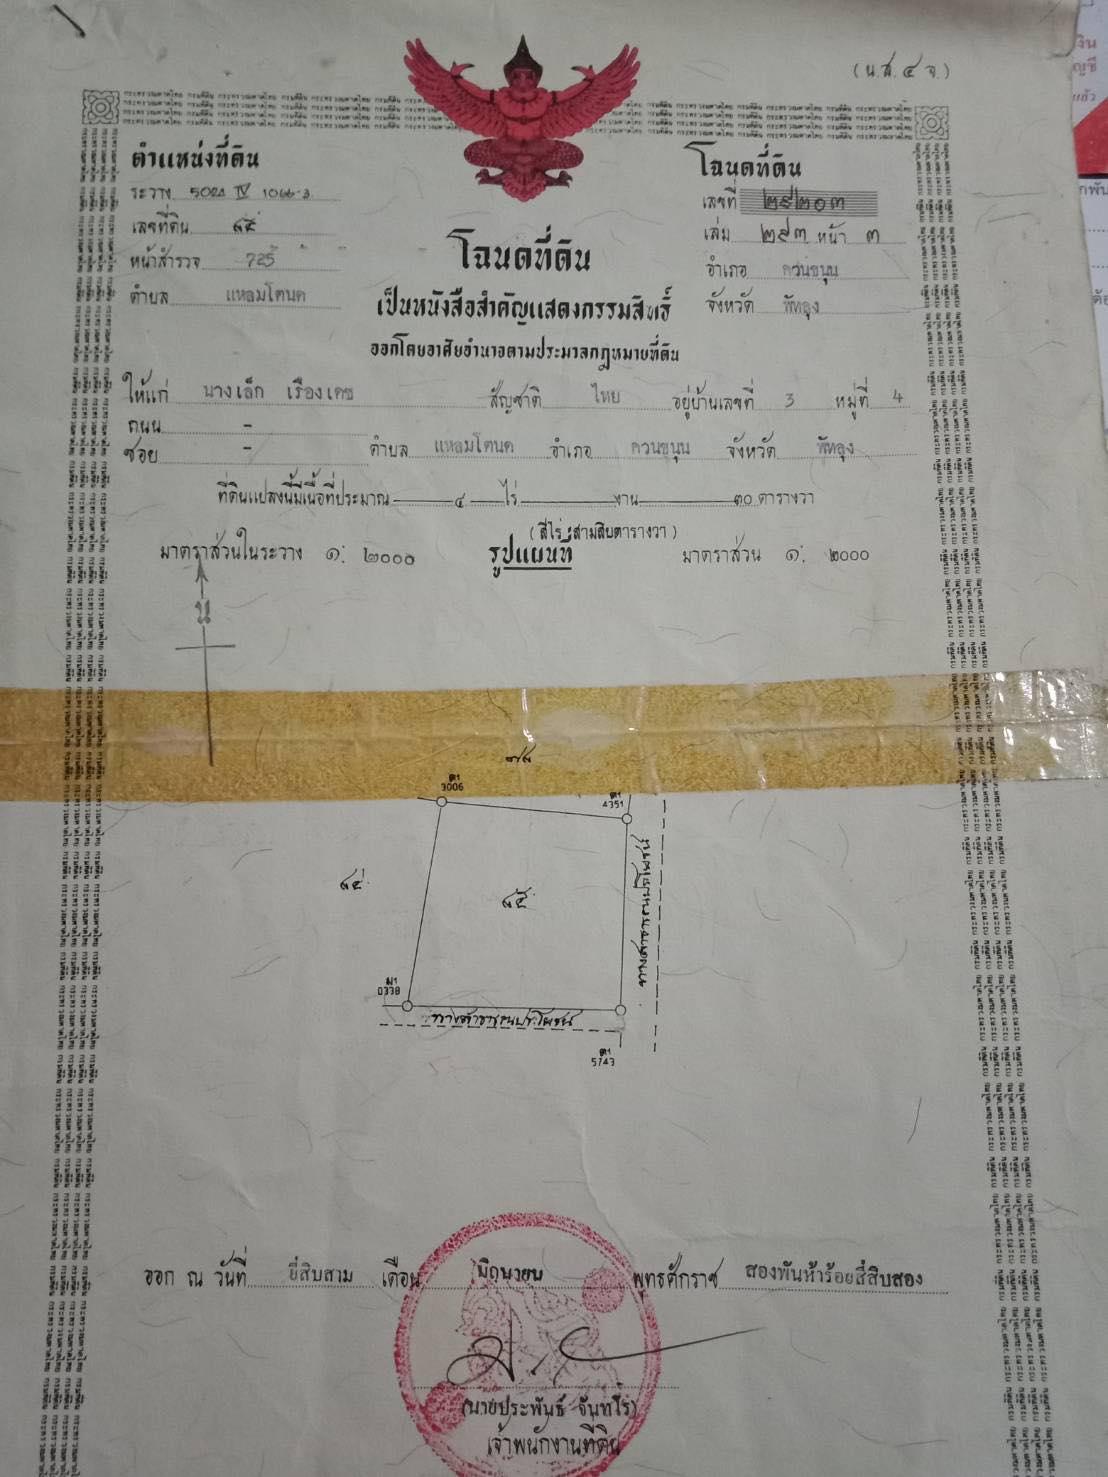 (น.ส. ๔ จ.)
ตำแหน่งที่ดิน
ระวาง 5024 IV 1066-3
เลขที่ดิน ๘๕
หน้าสำรวจ 725
ตำบล แหลมโตนด
โฉนดที่ดิน
เลขที่ ๒๙๒๐๓
เล่ม ๒๙๓ หน้า ๓
อำเภอ ควนขนุน
จังหวัด พัทลุง
โฉนดที่ดิน
เป็นหนังสือสำคัญแสดงกรรมสิทธิ์
ออกโดยอาศัยอำนาจตามประมวลกฎหมายที่ดิน
ให้แก่ นางเล็ก เรืองเดช สัญชาติ ไทย อยู่บ้านเลขที่ 3 หมู่ที่ 4
ถนน -
ซอย - ตำบล แหลมโตนด อำเภอ ควนขนุน จังหวัด พัทลุง
ที่ดินแปลงนี้มีเนื้อที่ประมาณ ๔ ไร่ งาน ๓๐ ตารางวา
(สี่ไร่ สามสิบตารางวา)
มาตราส่วนในระวาง ๑: ๒๐๐๐ รูปแผนที่ มาตราส่วน ๑: ๒๐๐๐
น
ต1
3006
ต1
4351
๘๕
ทางสาธารณประโยชน์
0338
ทางสาธารณประโยชน์
ต1
5743
ออก ณ วันที่ ยี่สิบสาม เดือน มิถุนายน พุทธศักราช สองพันห้าร้อยสี่สิบสอง
(นายประพันธ์ จันทโร)
เจ้าพนักงานที่ดิน